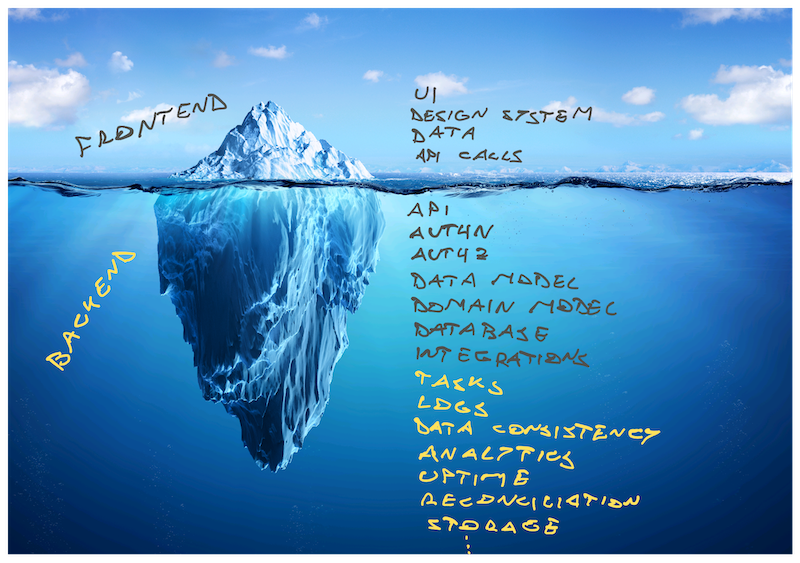 FRONTEND
UI
DESIGN SYSTEM
DATA
API CALLS
BACKEND
API
AUTHN
AUTHZ
DATA MODEL
DOMAIN MODEL
DATABASE
INTEGRATIONS
TASKS
LOGS
DATA CONSISTENCY
ANALYTICS
UPTIME
RECONCICIATION
STORAGE
⋮